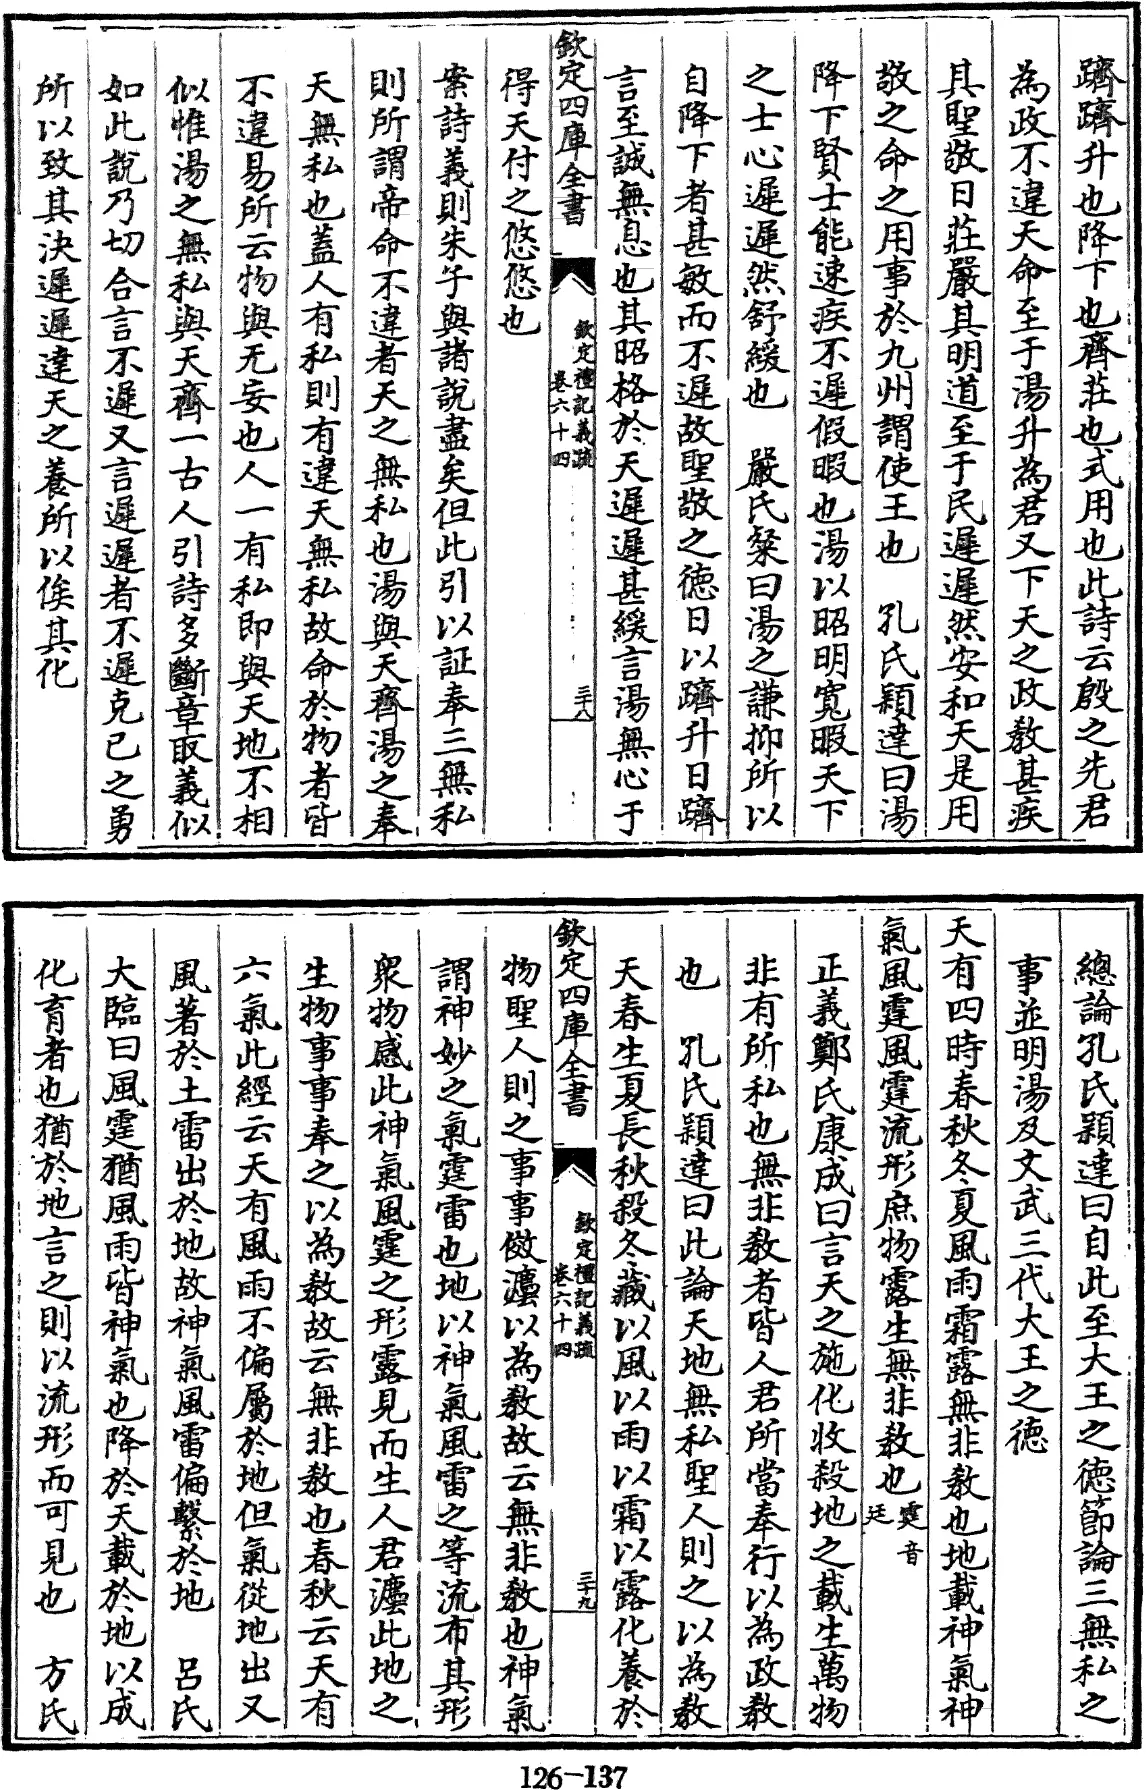 躋躋升也降下也齊莊也式用也此詩云殷之先君
為政不違天命至于湯升為君又下天之政教甚疾
其聖敬日莊嚴其明道至于民遲遲然安和天是用
敬之命之用事於九州謂使王也　孔氏穎達曰湯
降下賢士能速疾不遲假暇也湯以昭明寬暇天下
之士心遲遲然舒緩也　嚴氏粲曰湯之謙抑所以
自降下者甚敏而不遲故聖敬之德日以躋升日躋
言至誠無息也其昭格於天遲遲甚緩言湯無心于
欽定四庫全書
欽定禮記義疏
卷六十四
三十八
得天付之悠悠也
案詩義則朱子與諸說盡矣但此引以証奉三無私
則所謂帝命不違者天之無私也湯與天齊湯之奉
天無私也蓋人有私則有違天無私故命於物者皆
不違易所云物與无妄也人一有私即與天地不相
似惟湯之無私與天齊一古人引詩多斷章取義似
如此說乃切合言不遲又言遲遲者不遲克己之勇
所以致其決遲遲達天之養所以俟其化
總論孔氏穎達曰自此至大王之德節論三無私之
事並明湯及文武三代大王之德
天有四時春秋冬夏風雨霜露無非教也地載神氣神
氣風霆風霆流形庶物露生無非教也霆音廷
正義鄭氏康成曰言天之施化收殺地之載生萬物
非有所私也無非教者皆人君所當奉行以為政教
也　孔氏穎達曰此論天地無私聖人則之以為教
天春生夏長秋殺冬藏以風以雨以霜以露化養於
欽定四庫全書
欽定禮記義疏
卷六十四
三十九
物聖人則之事事倣灋以為教故云無非教也神氣
謂神妙之氣霆雷也地以神氣風雷之等流布其形
衆物感此神氣風霆之形露見而生人君灋此地之
生物事事奉之以為教故云無非教也春秋云天有
六氣此經云天有風雨不偏屬於地但氣從地出又
風著於土雷出於地故神氣風雷偏繫於地　呂氏
大臨曰風霆猶風雨皆神氣也降於天載於地以成
化育者也猶於地言之則以流形而可見也　方氏
126-137